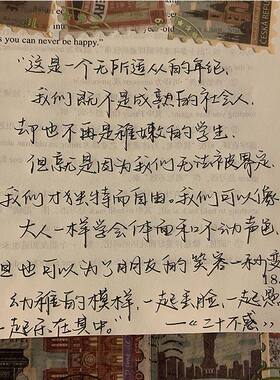 s you can never be happy."
"这是一个无所适从的年纪,
我们既不是成熟的社会人,
却也不再是稚嫩的学生.
但就是因为我们无法被界定,
我们才独特而自由。我们可以像
大人一样学会体面和不动声色,
但也可以为了朋友的笑容一秒变
幼稚的模样,一起丢脸,一起
一起乐在其中。"——《三十不惑》